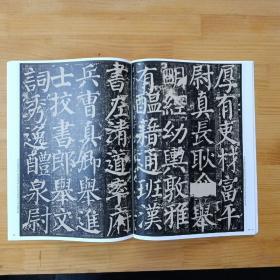 厚有吏材富平
尉真長耿介舉
明經幼輿敦雅
有醞藉通班漢
書左清道率府
兵曹真卿舉進
士校書郎舉文
詞秀逸醴泉尉